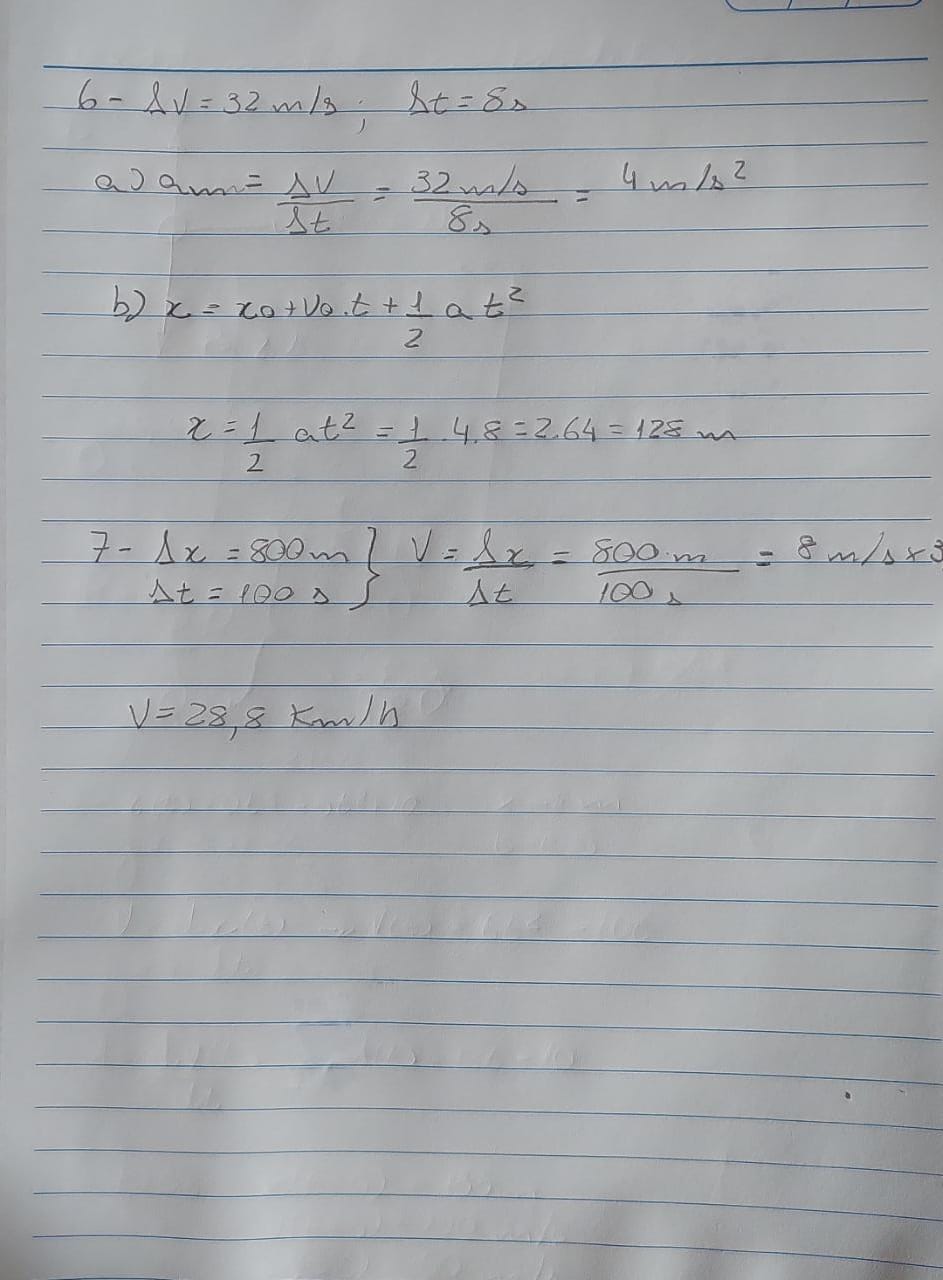 6 - ΔV = 32 m/s ; Δt = 8s
a) am = ΔV/Δt = 32 m/s / 8s = 4 m/s²
b) x = x0 + V0.t + 1/2 a t²
x = 1/2 at² = 1/2 .4.8 = 2.64 = 128 m
7 - Δx = 800m } V = Δx/Δt = 800 m / 100 s = 8 m/s x 3
Δt = 100 s
V = 28,8 Km/h